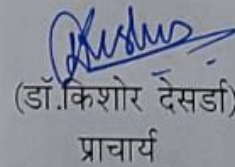 (डॉ.किशोर देसर्डा)
प्राचार्य